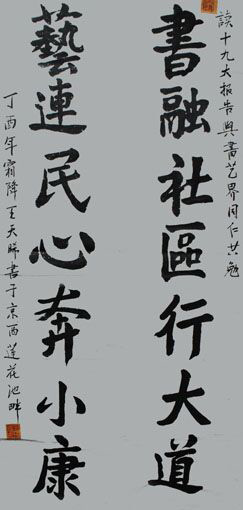 读十九大报告與書艺界同仁共勉
書融社區行大道
藝連民心奔小康
丁酉年霜降王天勝書于京西蓮花池畔